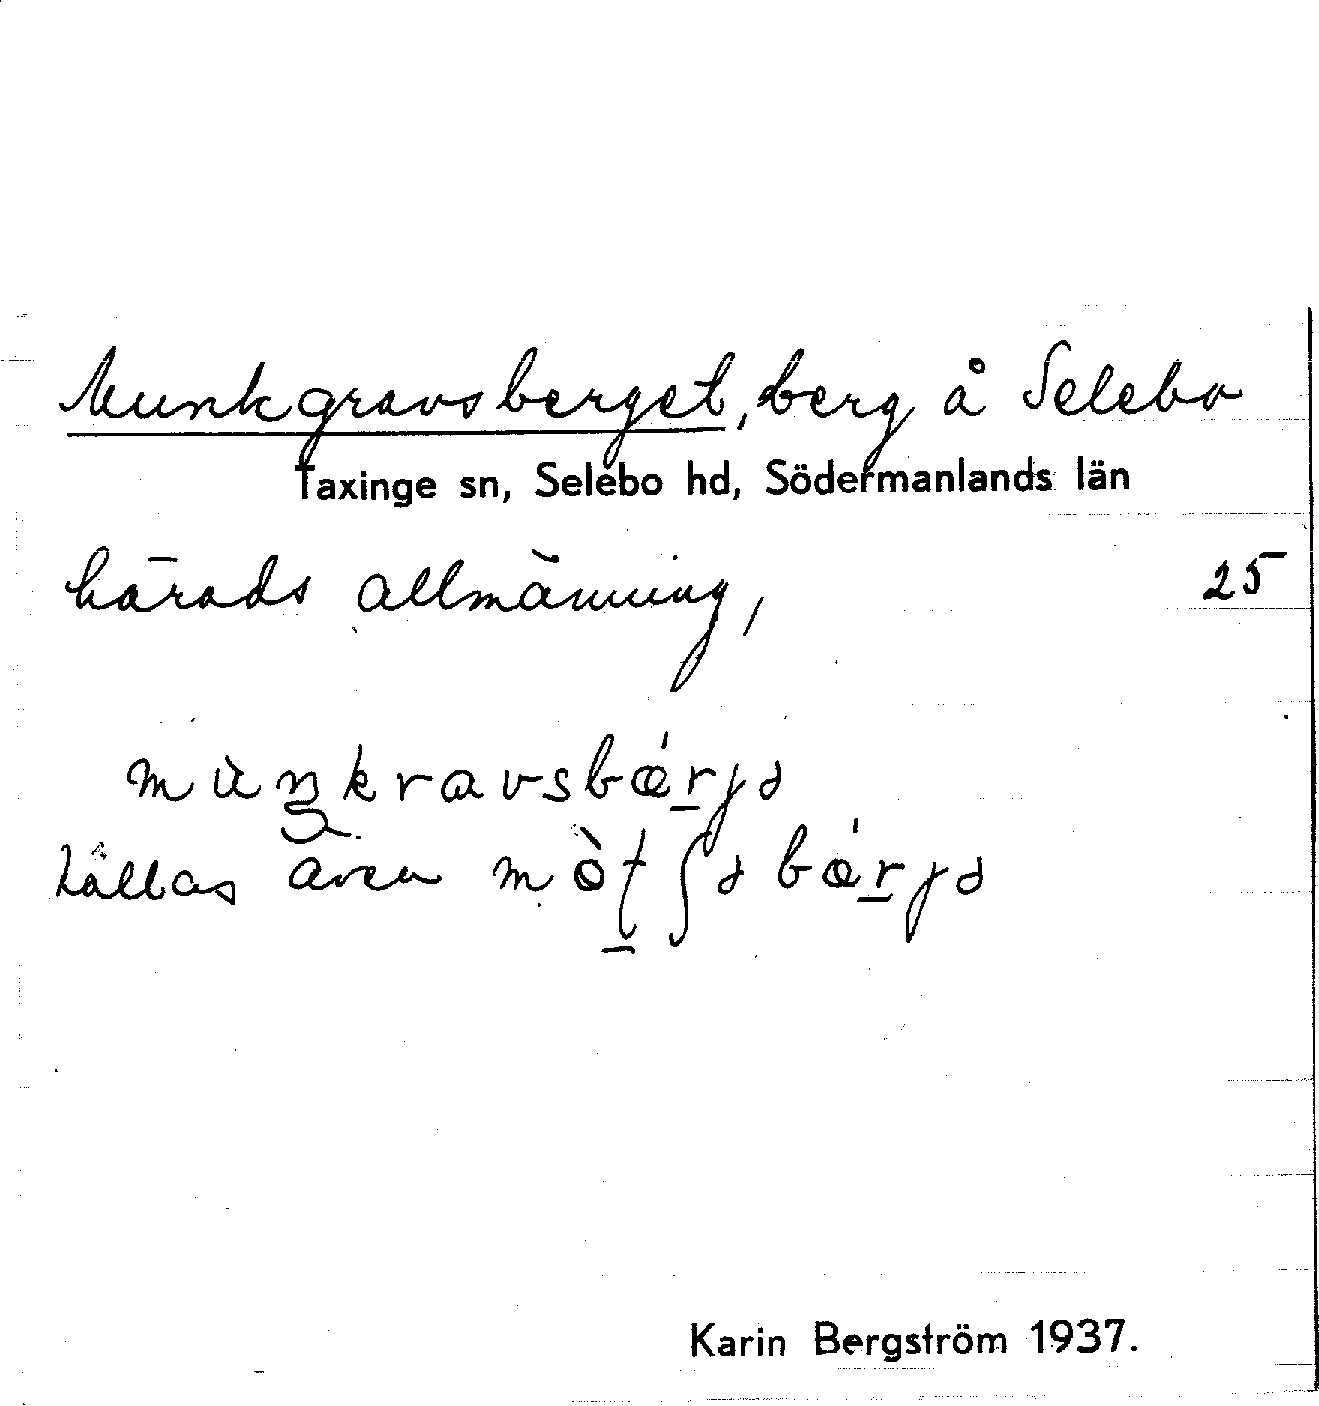 Munkgravsberget, berg å Selebo
Taxinge sn, Selebo hd, Södermanlands län
härads allmänning,
25
mùŋkravsbǽr̠jə
kallas även mòt̠ʃəbǽr̠jə
Karin Bergström 1937.